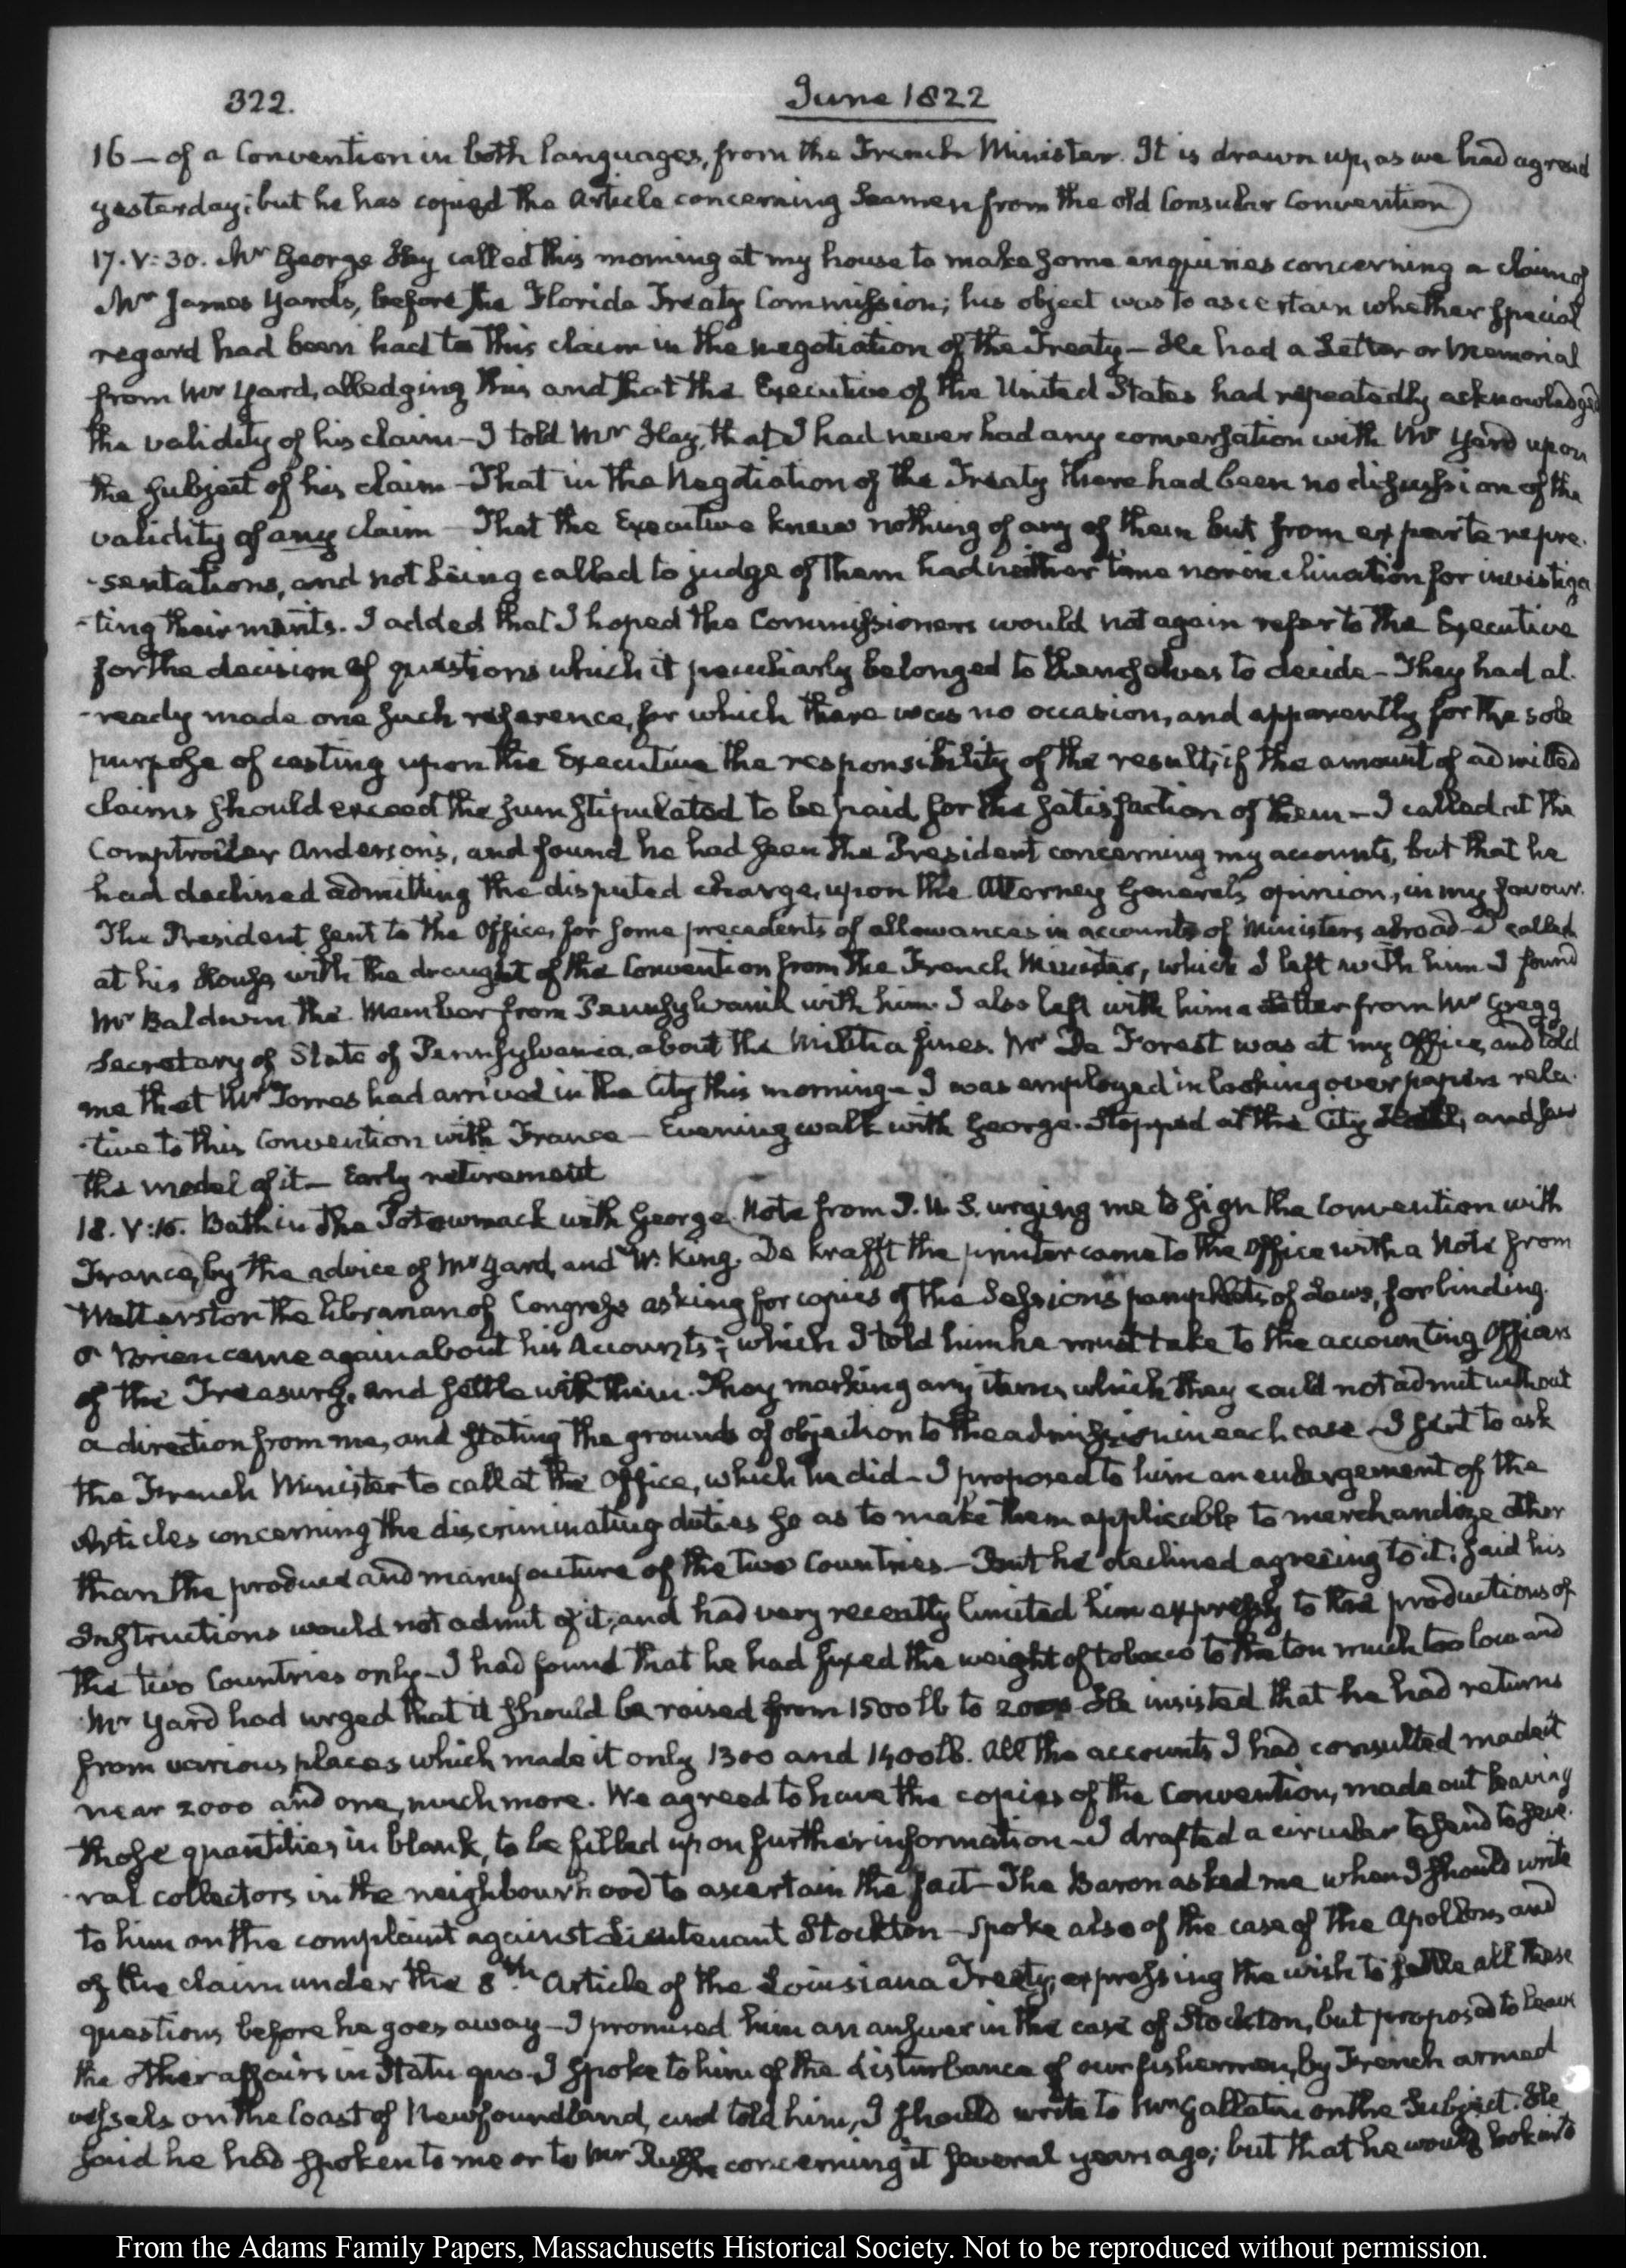 322.
June 1822
16 — of a Convention in both languages, from the French Minister. It is drawn up, as we had agreed
yesterday; but he has copied the Article concerning Seamen from the old Consular Convention)
17. V:30. Mr George Hay called this morning at my house to make some enquiries concerning a claim of
Mr James Yard's, before the Florida Treaty Commission; his object was to ascertain whether special
regard had been had to this claim in the negotiation of the Treaty — He had a Letter or Memorial
from Mr Yard, alledging this and that the Executive of the United States had repeatedly acknowledged
the validity of his claim — I told Mr Hay, that I had never had any conversation with Mr Yard upon
the subject of his claim — That in the Negotiation of the Treaty there had been no discussion of the
validity of any claim — That the Executive knew nothing of any of them but from ex parte repre-
-sentations, and not being called to judge of them had neither time nor inclination for investiga
-ting their merits. I added that I hoped the Commissioners would not again refer to the Executive
for the decision of questions which it peculiarly belonged to themselves to decide — They had al-
-ready made one such reference, for which there was no occasion, and apparently for the sole
purpose of casting upon the Executive the responsibility of the result, if the amount of admitted
claims should exceed the sum stipulated to be paid for the satisfaction of them — I called at the
Comptroller Anderson's, and found he had seen the President concerning my accounts, but that he
had declined admitting the disputed charge, upon the Attorney General's opinion, in my favour.
The President sent to the Office, for some precedents of allowances in accounts of Ministers abroad — I called
at his House with the draught of the Convention from the French Minister, which I left with him. I found
Mr Baldwin the Member from Pennsylvania with him. I also left with him a Letter from Mr Gregg
Secretary of State of Pennsylvania, about the Militia fines. Mr De Forest was at my Office, and told
me that Mr Torres had arrived in the City this morning — I was employed in looking over papers rela-
-tive to this Convention with France — Evening walk with George. Stopped at the City Hall, and saw
the model of it — Early retirement
18. V:15. Bath in the Potowmack with George. Note from J. U. S. urging me to sign the Convention with
France, by the advice of Mr Yard, and W. King. De Krafft the printer came to the Office with a Note from
Watterston the librarian of Congress asking for copies of the Sessions pamphlets of Laws, for binding.
O'Brien came again about his Accounts; which I told him he must take to the accounting Officers
of the Treasury, and settle with them. They marking any items, which they could not admit without
a direction from me, and stating the grounds of objection to the admission in each case — I sent to ask
the French Minister to call at the Office, which he did — I proposed to him an enlargement of the
Articles concerning the discriminating duties so as to make them applicable to merchandize other
than the produce and manufacture of the two Countries — But he declined agreeing to it; said his
Instructions would not admit of it; and had very recently limited him expressly to the productions of
the two Countries only — I had found that he had fixed the weight of tobacco to the ton much too low and
Mr Yard had urged that it should be raised from 1500 lb to 2000 He insisted that he had returns
from various places which made it only 1300 and 1400 lb. All the accounts I had consulted made it
near 2000 and one, much more. We agreed to have the copies of the Convention, made out leaving
those quantities in blank, to be filled up on further information — I drafted a circular to send to seve-
-ral collectors in the neighbourhood to ascertain the fact — The Baron asked me when I should write
to him on the complaint against Lieutenant Stockton — Spoke also of the case of the Apollon, and
of the claim under the 8th Article of the Louisiana Treaty, expressing the wish to settle all these
questions before he goes away — I promised him an answer in the case of Stockton, but proposed to leave
the other affairs in Statu quo — I spoke to him of the disturbance of our fishermen, by French armed
vessels on the Coast of Newfoundland, and told him, I should write to Mr Gallatin on the Subject. He
said he had spoken to me or to Mr Rush concerning it several years ago; but that he would look into
From the Adams Family Papers, Massachusetts Historical Society. Not to be reproduced without permission.